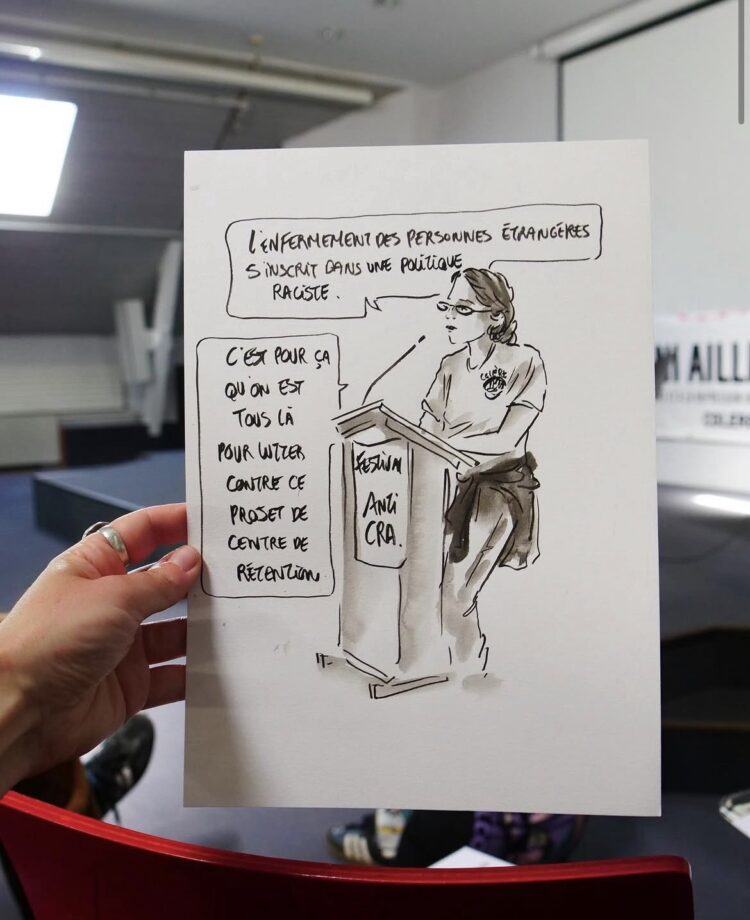 L'ENFERMEMENT DES PERSONNES ÉTRANGÈRES
S'INSCRIT DANS UNE POLITIQUE
RACISTE.
C'EST POUR ÇA
QU'ON EST
TOUS LÀ
POUR LUTTER
CONTRE CE
PROJET DE
CENTRE DE
RÉTENTION
COLÈRE
FESTIVAL
ANTI
CRA.
AILLE
COLÈRE